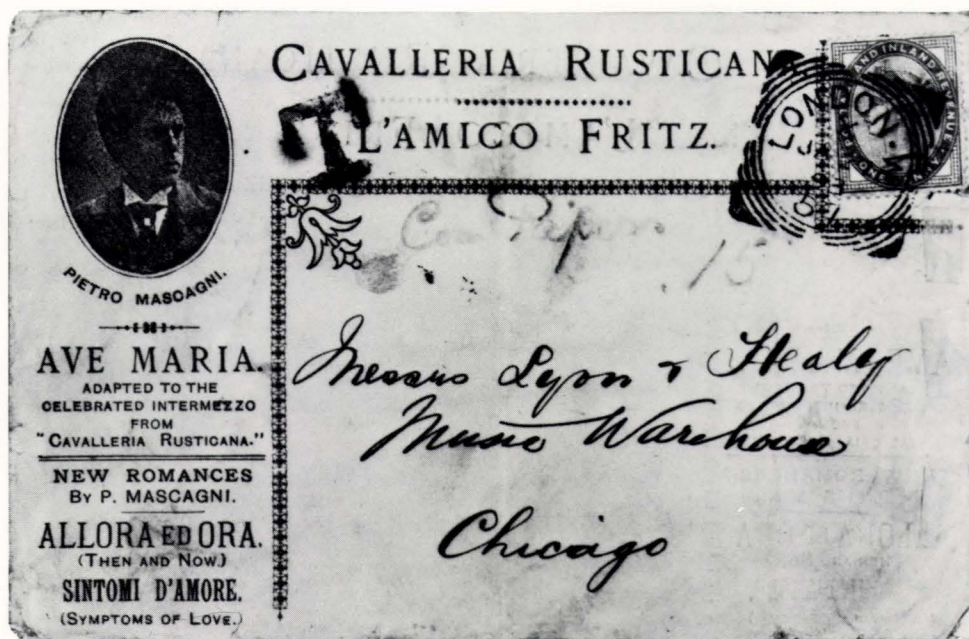 CAVALLERIA RUSTICANA
L'AMICO FRITZ.
T
LONDON. W
AND INLAND REVENUE
PIETRO MASCAGNI.
AVE MARIA.
ADAPTED TO THE
CELEBRATED INTERMEZZO
FROM
"CAVALLERIA RUSTICANA."
NEW ROMANCES
BY P. MASCAGNI.
ALLORA ED ORA.
(THEN AND NOW.)
SINTOMI D'AMORE.
(SYMPTOMS OF LOVE.)
15
Messrs Lyon & Healy
Music Warehouse
Chicago